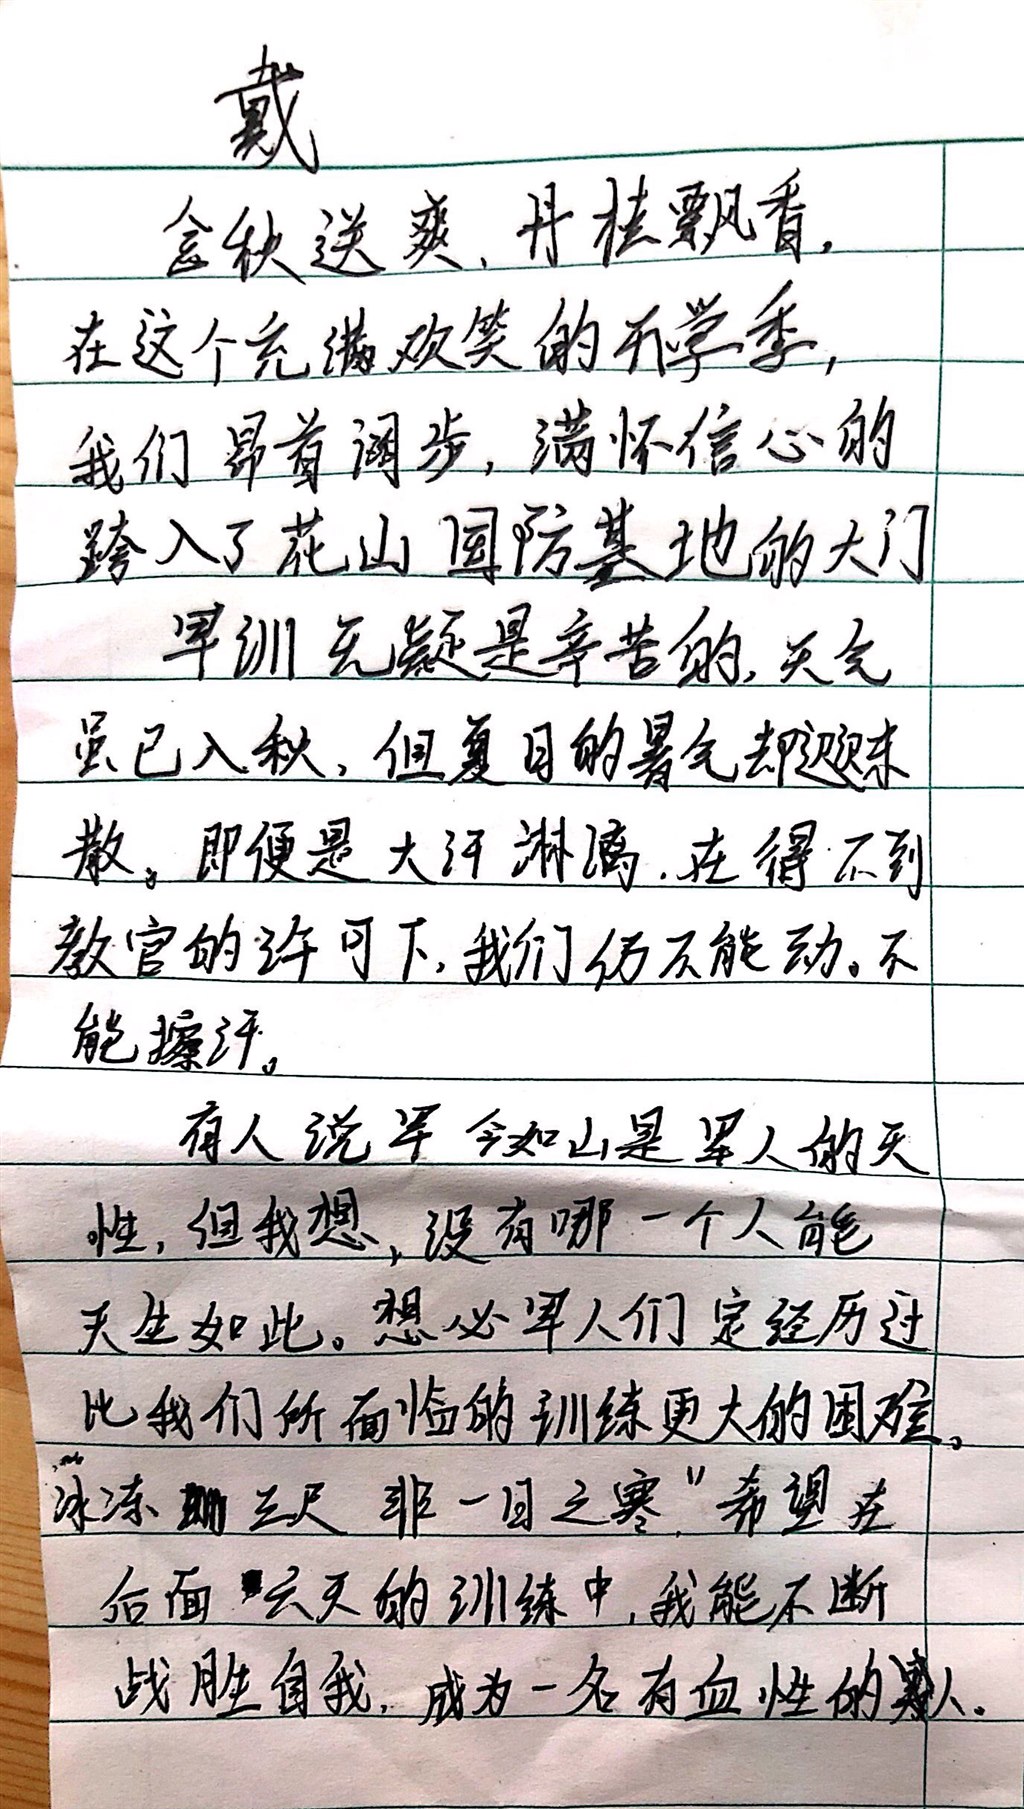 戴
金秋送爽、丹桂飘香,
在这个充满欢笑的开学季,
我们昂首阔步,满怀信心的
跨入了花山国防基地的大门
军训无疑是辛苦的,天气
虽已入秋,但夏日的暑气却迟迟未
散。即便是大汗淋漓,在得不到
教官的许可下,我们仍不能动。不
能擦汗。
有人说军令如山是军人的天
性,但我想,没有哪一个人能
天生如此。想必军人们定经历过
比我们所面临的训练更大的困难。
“冰冻三尺 非一日之寒,”希望在
后面六天的训练中,我能不断
战胜自我,成为一名有血性的人。